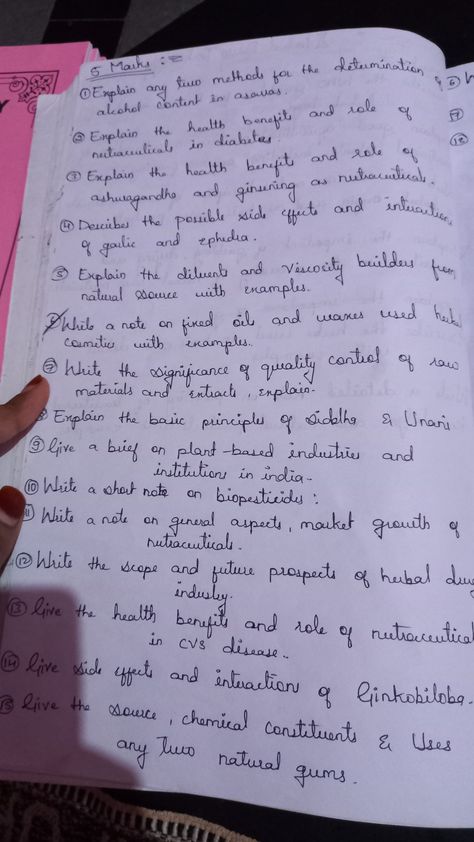 5 Marks :-
① Explain any two methods for the determination of
alcohol content in asavas.
② Explain the health benefit and role of
nutraceuticals in diabetes.
③ Explain the health benefit and role of
ashwagandha and ginseng as nutraceuticals.
④ Describe the possible side effects and interactions
of garlic and ephedra.
⑤ Explain the diluents and viscosity builders from
natural source with examples.
Write a note on fixed oils and waxes used herbal
cosmetic with examples.
⑦ Write the significance of quality control of raw
materials and extracts, explain.
8 Explain the basic principles of Siddha & Unani
⑨ Give a brief on plant-based industries and
institution in india.
⑩ Write a short note on biopesticides :
11 Write a note on general aspects, market growth of
nutraceuticals.
⑫ Write the scope and future prospects of herbal drug
industry.
⑬ Give the health benefits and role of nutraceutical
in CVS disease..
⑭ Give side effects and interaction of Ginkobiloba.
15 Give the source, chemical constituents & Uses
any two natural gums.
⑰
⑱